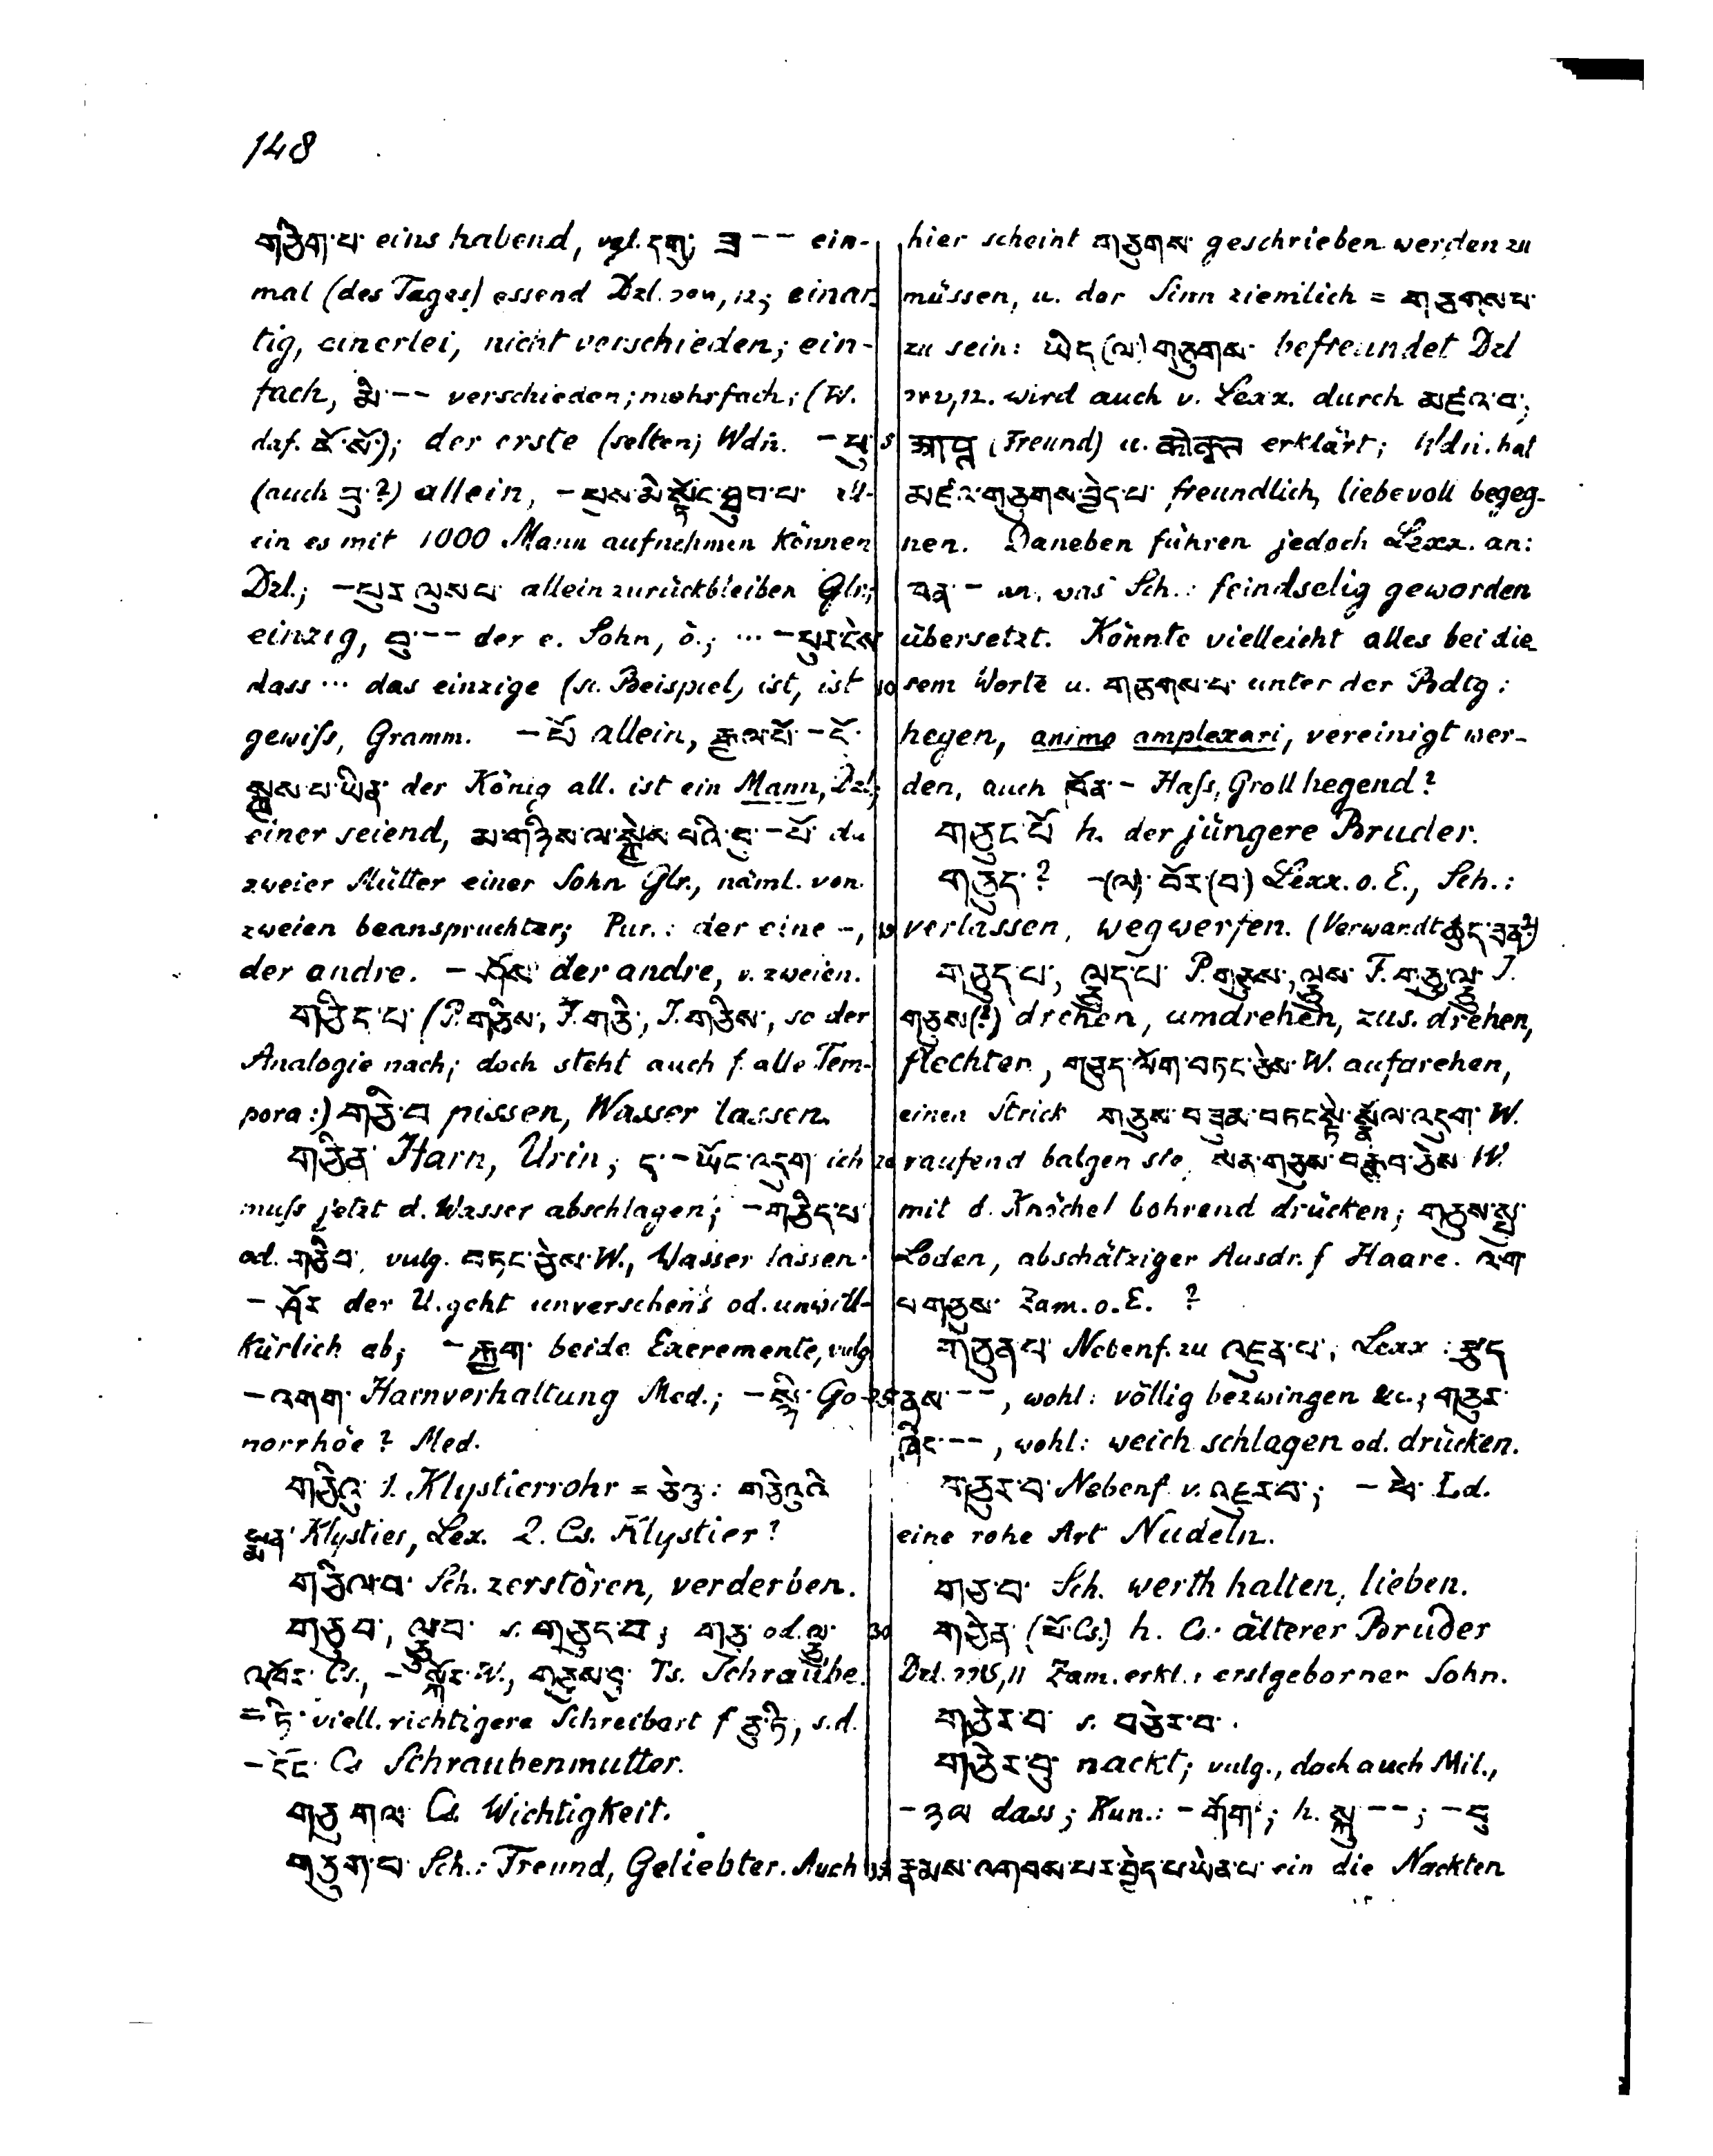 148
གཅིག་པ་ eins habend, vgl. དགུ; ཟ་ -- ein-
mal (des Tages) essend Dzl. 12; einar-
tig, einerlei, nicht verschieden; ein-
fach, མི་ -- verschieden; mehrfach; (W.
daf. ཚོ་སོ་); der erste (selten) Wdn. - པུ་
(auch བུ་?) allein, - པུས་མི་སྟོང་ཐུབ་པ་ all-
ein es mit 1000 Mann aufnehmen können
Dzl.; - པུར་ལུས་པ་ allein zurückbleiben Glr.;
einzig, བུ་ -- der e. Sohn, ö.; ... - པུར་ངེས་
dass ... das einzige (sc. Beispiel) ist, ist
gewiss, Gramm. - པོ་ allein, རྒྱལ་པོ་ - པོ་
སྐྱེས་པ་ཡིན་ der König all. ist ein Mann, Dzl.;
einer seiend, མ་གཉིས་ལ་སྐྱེས་པའི་བུ་ - པོ་ du
zweier Mütter einer Sohn Glr., näml. von
zweien beanspruchter; Pur.: der eine -,
der andre. - ཤོས་ der andre, v. zweien.
གཅིད་པ་ (P. གཅིས་, F. གཅི་, I. གཅིས་, so der
Analogie nach; doch steht auch f. alle Tem-
pora:) གཅི་བ pissen, Wasser lassen.
གཅིན་ Harn, Urin; ད་ - ཡོང་འདུག ich
muss jetzt d. Wasser abschlagen; - གཅིད་པ་
od. གཅི་བ, vulg. བཏང་ཅེས་ W., Wasser lassen.
- ཤོར der U. geht unversehens od. unwill-
kürlich ab; - རྒྱག་ beide Excremente, vulg.
- འགག་ Harnverhaltung Med.; - སྙི་ Go-
norrhöe? Med.
གཅེའུ་ 1. Klystierrohr = ཅེའུ་: གཅིའུའི་
སྨན་ Klystier, Lex. 2. Cs. Klystier?
གཅིལ་བ་ Sch. zerstören, verderben.
གཅུ་བ་, ལྕུ་བ་ s. གཅུད་པ་; གཅུ་ od. ལྕུ་
འཁོར་ Cs., - སྐོར་ W., གཅུས་བུ་ Ts. Schraube.
- ཏི་ viell. richtigere Schreibart f. ཅུ་ཏི, s.d.
- དོང་ Cs Schraubenmutter.
གཅུ་གལ་ Cs. Wichtigkeit.
གཅུག་པ་ Sch.: Freund, Geliebter. Auch
hier scheint གཅུགས་ geschrieben werden zu
müssen, u. der Sinn ziemlich = གཅུགས་པ་
zu sein: ཡིད་(ལ་)གཅུགས་ befreundet Dzl
12. wird auch v. Lexx. durch མཛའ་བ་,
(Freund) u. erklärt; Wdn. hat
མཛའ་གཅུགས་བྱེད་པ་ freundlich, liebevoll begeg-
nen. Daneben führen jedoch Lexx. an:
- an, was Sch.: feindselig geworden
übersetzt. Könnte vielleicht alles bei die-
sem Worte u. གཅུགས་པ་ unter der Bdtg:
hegen, animo amplexari, vereinigt wer-
den, auch ཁོན་ - Hass, Groll hegend?
གཅུང་པོ h. der jüngere Bruder.
གཅུད་? -(ལ); བོར་(བ་) Lexx. o. E., Sch.:
verlassen, wegwerfen. (Verwandt
གཅུད་པ་, ལྕུད་པ་ P. གཅུས་, ལྕུས་ F. གཅུ་, ལྕུ་ I.
གཅུས(?) drehen, umdrehen, zus. drehen,
flechten, གཅུད་ལོག་བཏང་ཅེས་ W. aufdrehen,
einen Strick W.
raufend balgen sie, སེན་གཅུས་བརྒྱབ་ཅེས W.
mit d. Knöchel bohrend drücken; གཅུས་སྤྲ་
Loden, abschätziger Ausdr. f. Haare.
གཅུས་ Zam. o. E. ?
གཅུན་པ་ Nebenf. zu འཇུན་པ་, Lexx:
ནས་ --, wohl: völlig bezwingen &c.; གཅུར་
ཞིང་ --, wohl: weich schlagen od. drücken.
གཅུར་བ་ Nebenf. v. འཇུར་བ་; - ཕེ་ Ld.
eine rohe Art Nudeln.
གཅེ་བ་ Sch. werth halten, lieben.
གཅེན་ (པོ་ Cs.) h. Cs. älterer Bruder
Dzl. 11 Zam. erkl.: erstgeborner Sohn.
གཅེར་བ་ s. བཅེར་བ་.
གཅེར་བུ་ nackt; vulg., doch auch Mil.,
- ཉལ dass; Kun.: - གོག་; h. སྐུ་ --; - བུ་
རྣམས་འགེབས་པར་བྱེད་པ་ཡིན་པ་ ein die Nackten